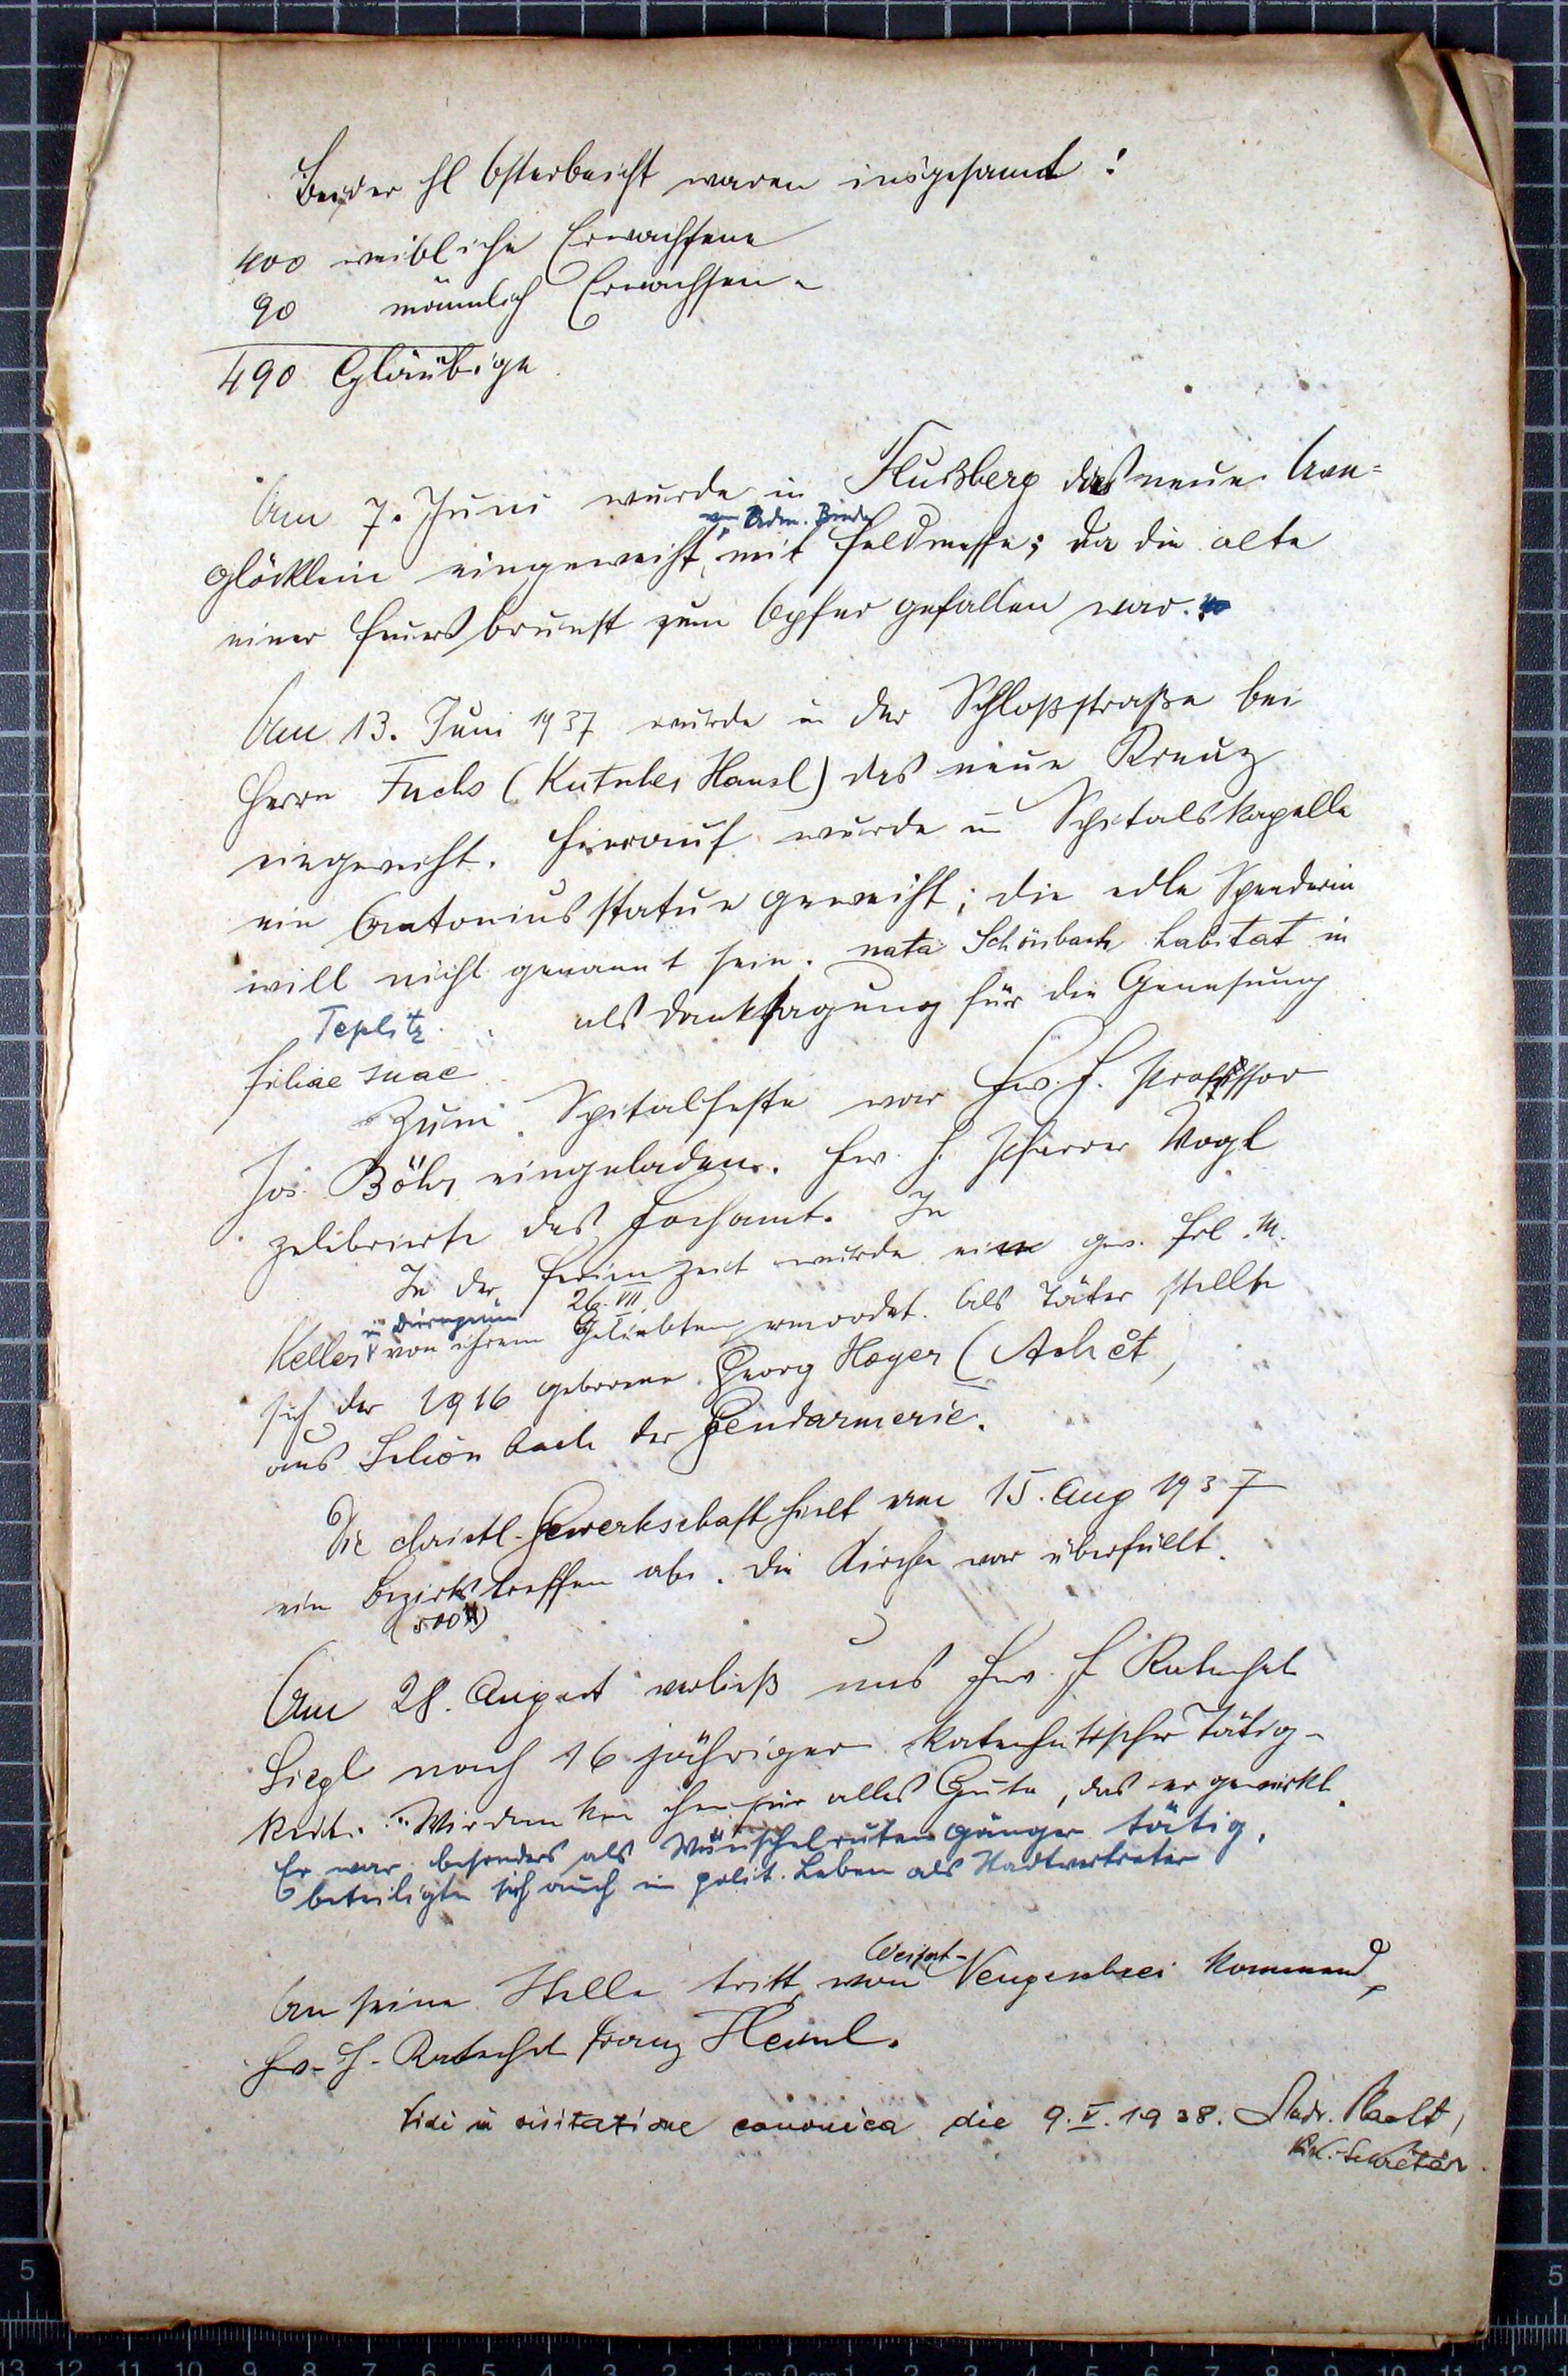 Bei der hl Osterbeicht waren insgesamt:
400 weibliche Erwachsene
90 männlich Erwachsen.
490 Gläubige
Am 7. Juni wurde in Flußberg das neue Ave=
von Adm. Binder
glöcklein eingeweiht, mit Feldmesse; da die alte
einer Feuersbrunst zum Opfer gefallen war.
Am 13. Juni 1937 wurde in der Schloßstraße bei
Herrn Fuchs (Hansl) das neue Kreuz
eingeweiht. Hierauf wurde in Spitalskapelle
ein Antoniusstatue geweiht; die edle Spenderin
will nicht genannt sein. nata Schönbach habitat in
Teplitz. als Danksagung für die Genesung
filiae suae
Zum Spitalfeste war Hw. H. Professor
Jos Böhr eingeladen. Hw. H. Pfarrer Vogl
zelibrierte das Hochamt. In
In der Ferienzeit wurde eine gew. Frl. M.
in 26. VII.
Keller von ihrem Geliebten ermordet. Als Täter stellte
sich der 1916 geborene Georg Hoyer
aus Schönbach der Gendarmerie.
Die christl. Gewerkschaft hielt am 15. Aug 1937
ein Bezirkstreffen ab. Die Kirche war überfüllt.
(500)
Am 28. August verließ uns Hw. H Katechet
Siegl nach 16 jähriger katechetischer Tätig-
keit. Wir danken ihm für alles Gute, das er gewirkt.
Er war besonders als Wünschelrutengänger tätig,
beteiligte sich auch im polit. Leben als Stadtvertreter
Weipert-
An seine Stelle tritt, von Neugeschrei kommend,
Hw. H. Katechet Franz Heinl.
Vidi in visitatione canonica die 9. V. 1938.
Sekretär